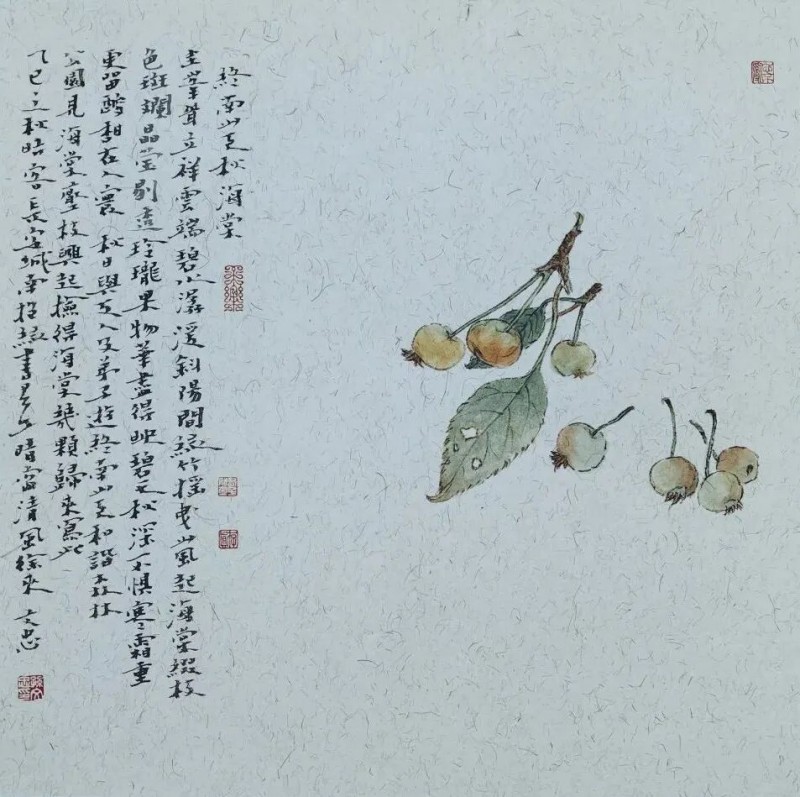 終南山之秋海棠
圭峯聳立祥雲端碧水潺湲斜陽間綠竹搖曳山風起海棠綴枝
色斑斕晶莹剔透玲瓏果物華盡得映碧天秋深不惧寒霜重
更留酸甜在人寰 秋日與友人及弟子遊終南山之和諧森林
公園見海棠壓枝興起撿得海棠幾顆歸來寫此
乙巳立秋時客長安城南 書 清風徐來 文忠